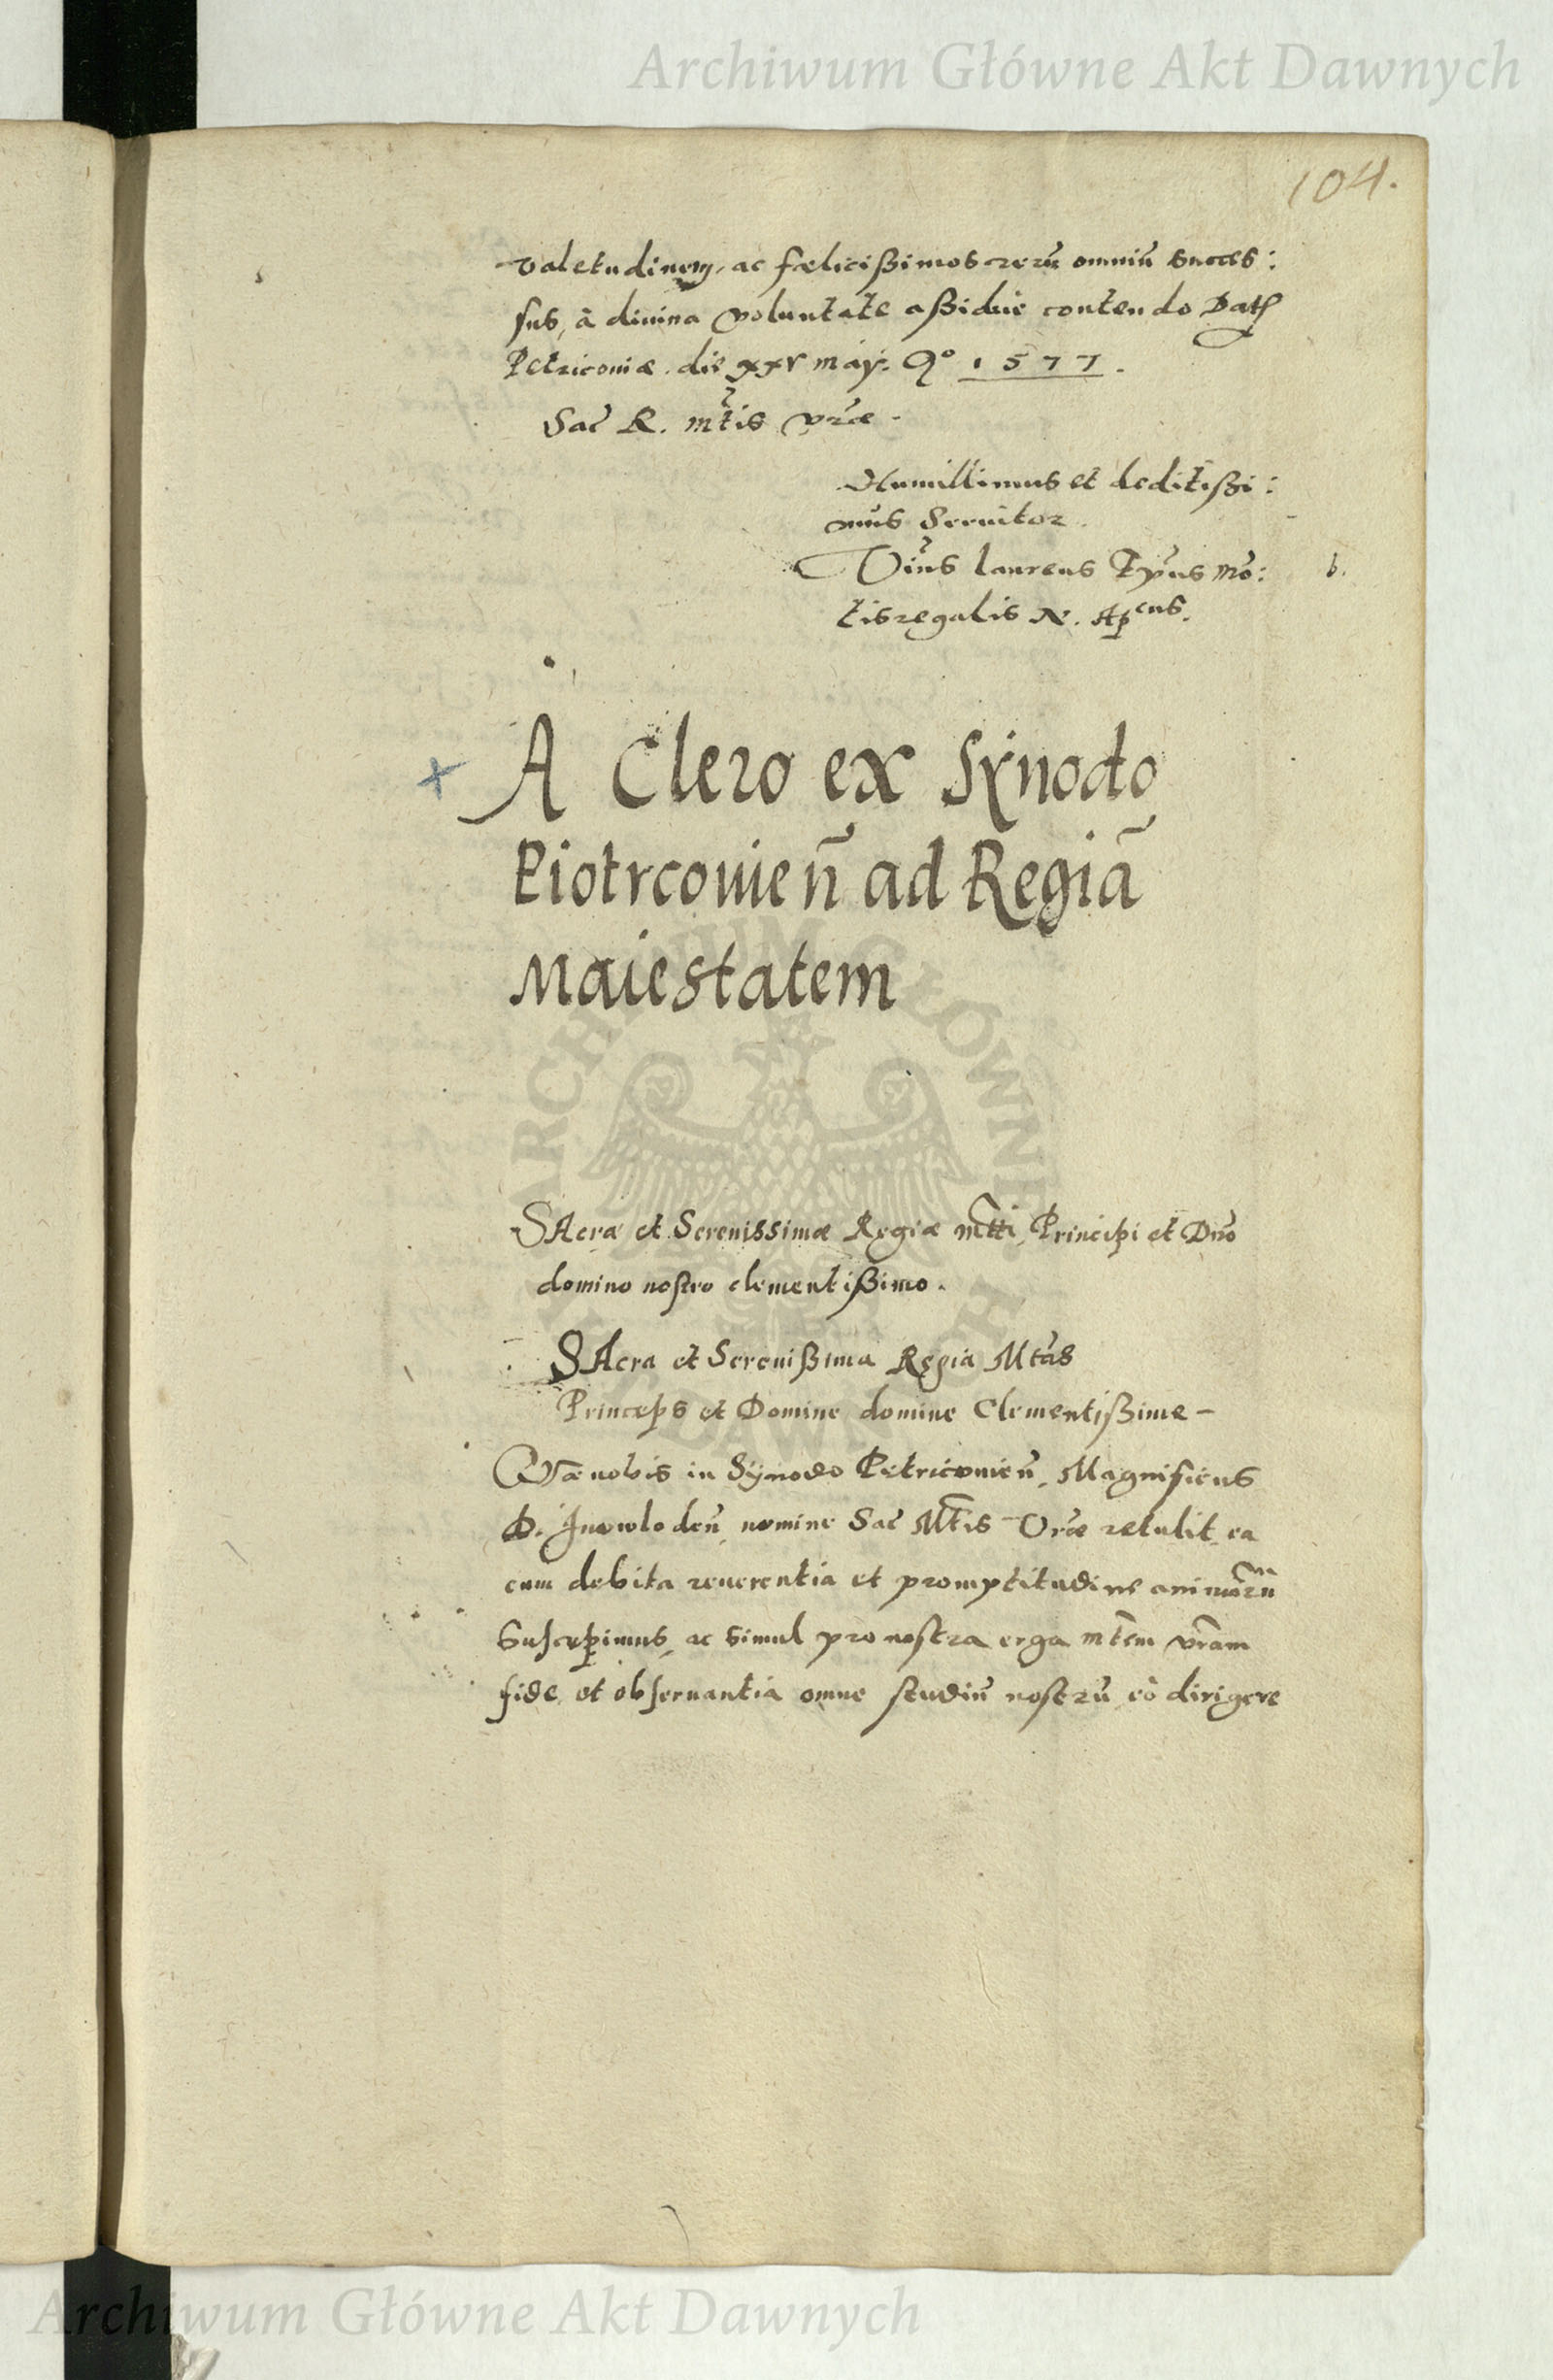 Archiwum Główne Akt Dawnych
104.
valetudinem, ac fœlicißimos rerū omniū succes:
sus, à diuina voluntate aßidue contendo Dat
Petricouiæ. die xxv maÿ. Aº 1577.
Sac̃ R. mt̃is vr̃æ.
Humillimus et deditißi:
mus Seruitor.
laureus Ep̃us mõ: b.
tisregalis N. Ap̃cus.
A Clero ex Sÿnodo
Piotrcouieñ ad Regiã
Maiestatem
SAcræ et Serenissimæ Regiæ mt̃ti, Principi et Dño
domino nostro clementißimo.
SAcra et Serenißima Regia Mt̃as
Princeps et Domine domine Clementißime –
Quæ nobis in Sÿnodo Petricouieñ, Magnificus
D. Inowlodeñ, nomine Sac̃ Mt̃is Vr̃æ retulit, ea
cum debita reuerentia et promptitudine animorũ
suscepimus, ac simul pro nostra erga mt̃em vr̃am
fide, et obseruantia omne studiū nostrū eò dirigere
ARCHIWUM GŁÓWNE
AKT DAWNYCH
Archiwum Główne Akt Dawnych